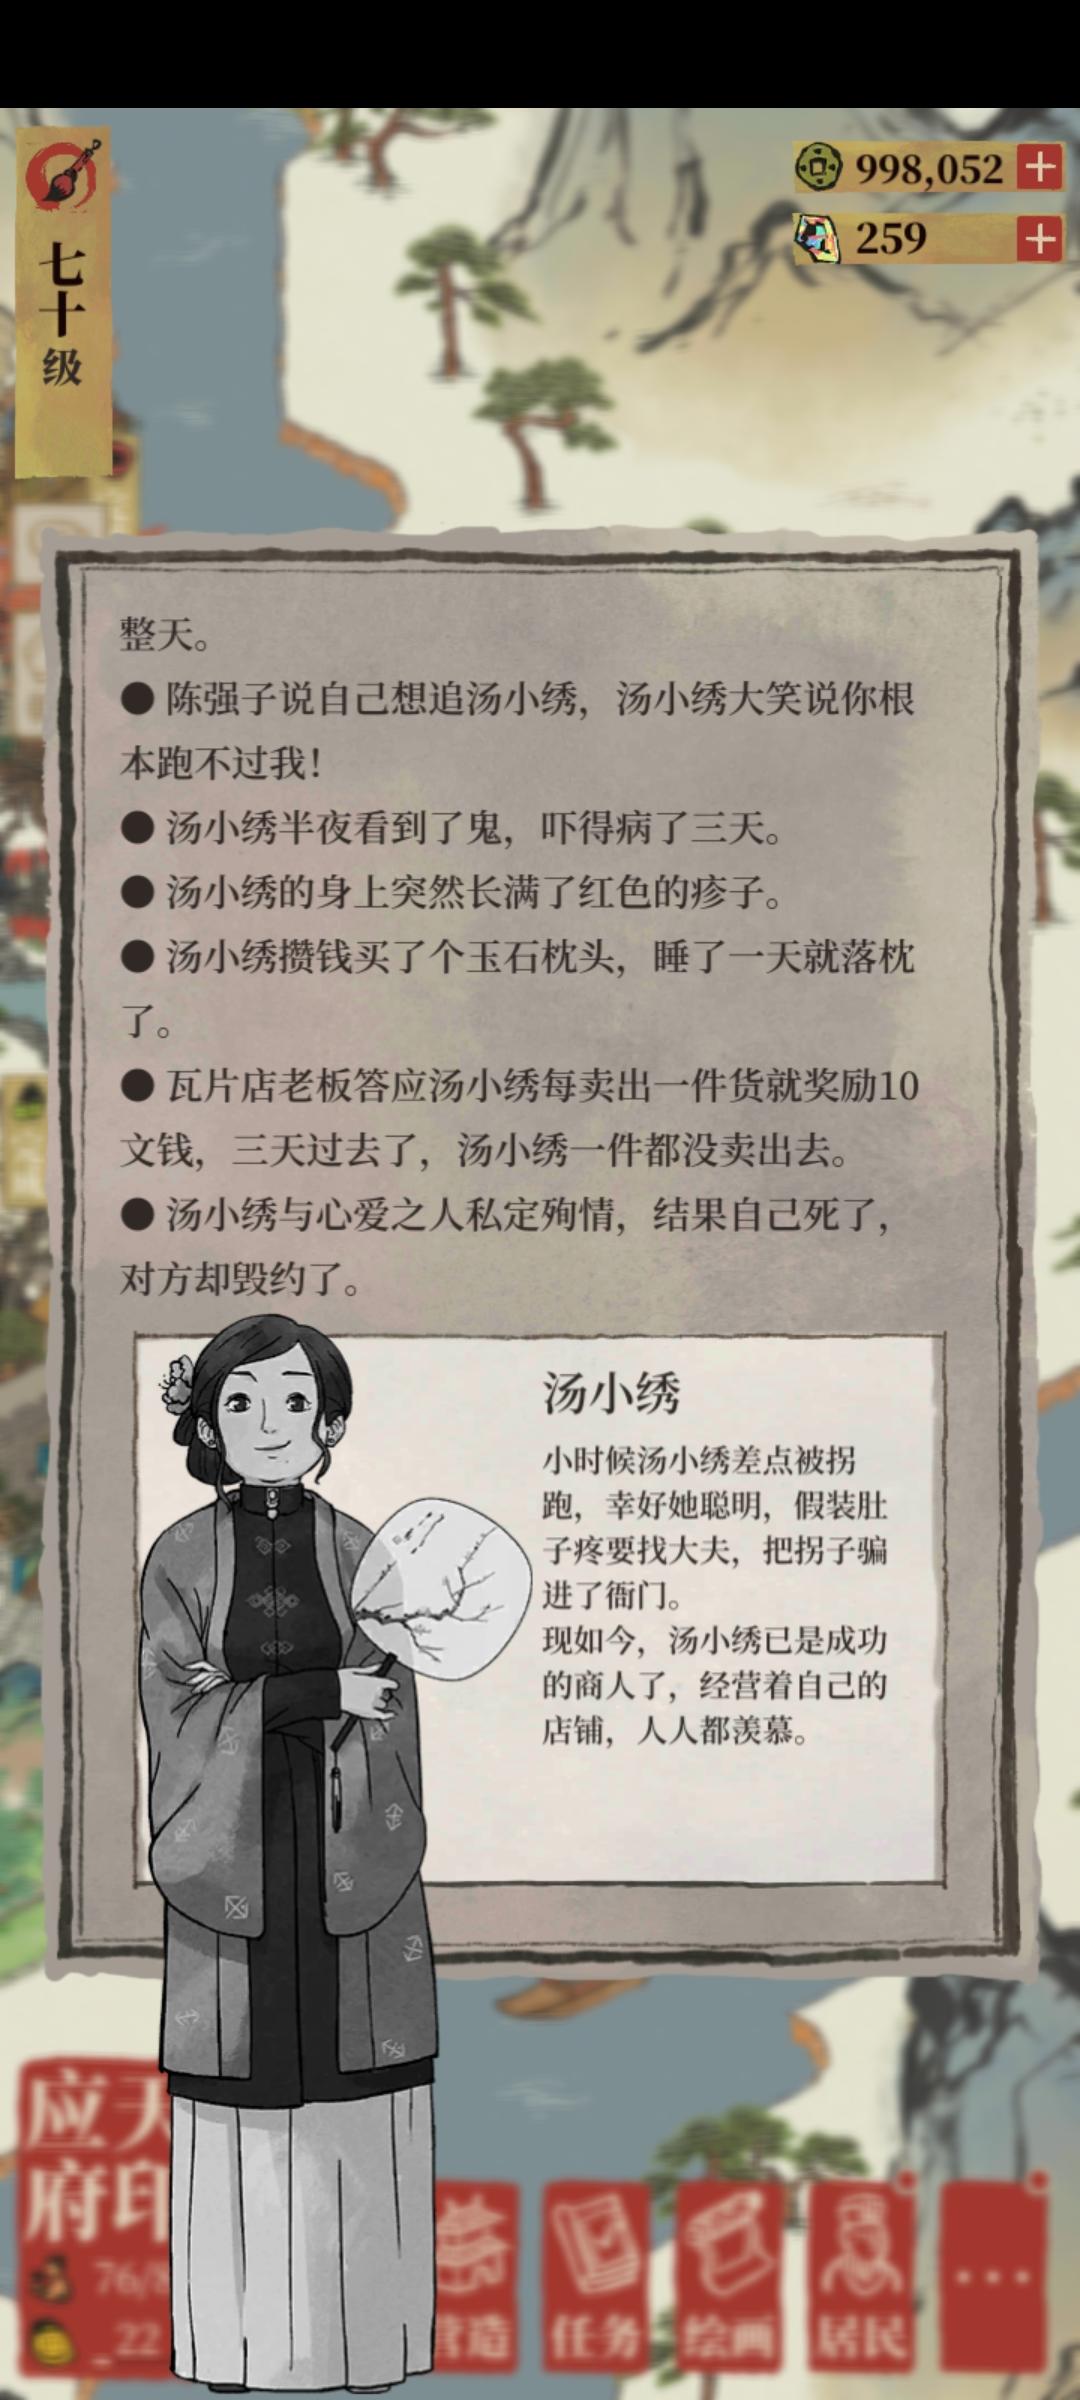 七十级
998,052
259
整天。
● 陈强子说自己想追汤小绣，汤小绣大笑说你根
本跑不过我！
● 汤小绣半夜看到了鬼，吓得病了三天。
● 汤小绣的身上突然长满了红色的疹子。
● 汤小绣攒钱买了个玉石枕头，睡了一天就落枕
了。
● 瓦片店老板答应汤小绣每卖出一件货就奖励10
文钱，三天过去了，汤小绣一件都没卖出去。
● 汤小绣与心爱之人私定殉情，结果自己死了，
对方却毁约了。
汤小绣
小时候汤小绣差点被拐
跑，幸好她聪明，假装肚
子疼要找大夫，把拐子骗
进了衙门。
现如今，汤小绣已是成功
的商人了，经营着自己的
店铺，人人都羡慕。
应天
府印
76/8
22
营造
任务
绘画
居民